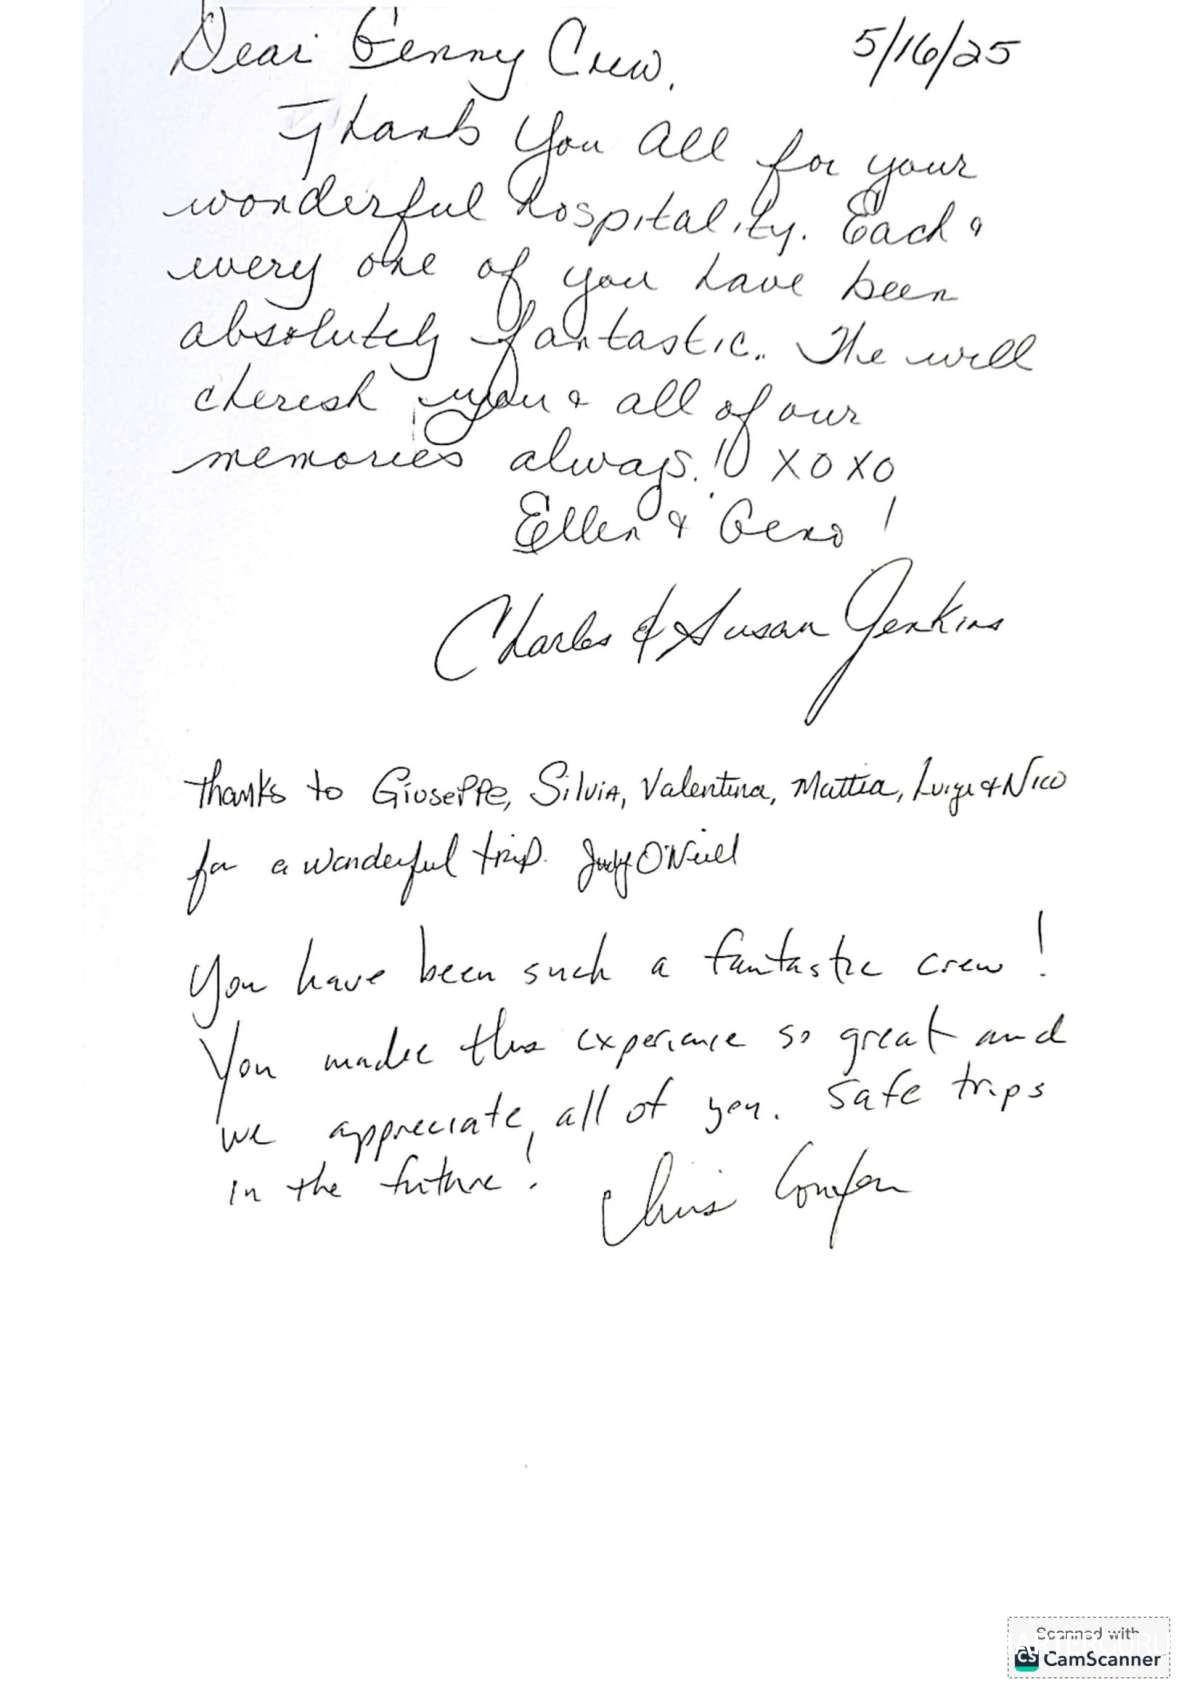 Dear Genny Crew, 5/16/25
Thank You all for your
wonderful hospitality. Each &
every one of you have been
absolutely fantastic. The will
cherish you & all of our
memories always! XOXO
Ellen & Geno!
Charles & Susan Jenkins
Thanks to Giuseppe, Silvia, Valentina, Mattia, Luigi & Nico
for a wonderful trip. Judy O'Neill
You have been such a fantastic crew!
You made this experience so great and
we appreciate all of you. Safe trips
in the future! Chris
Scanned with
CS CamScanner